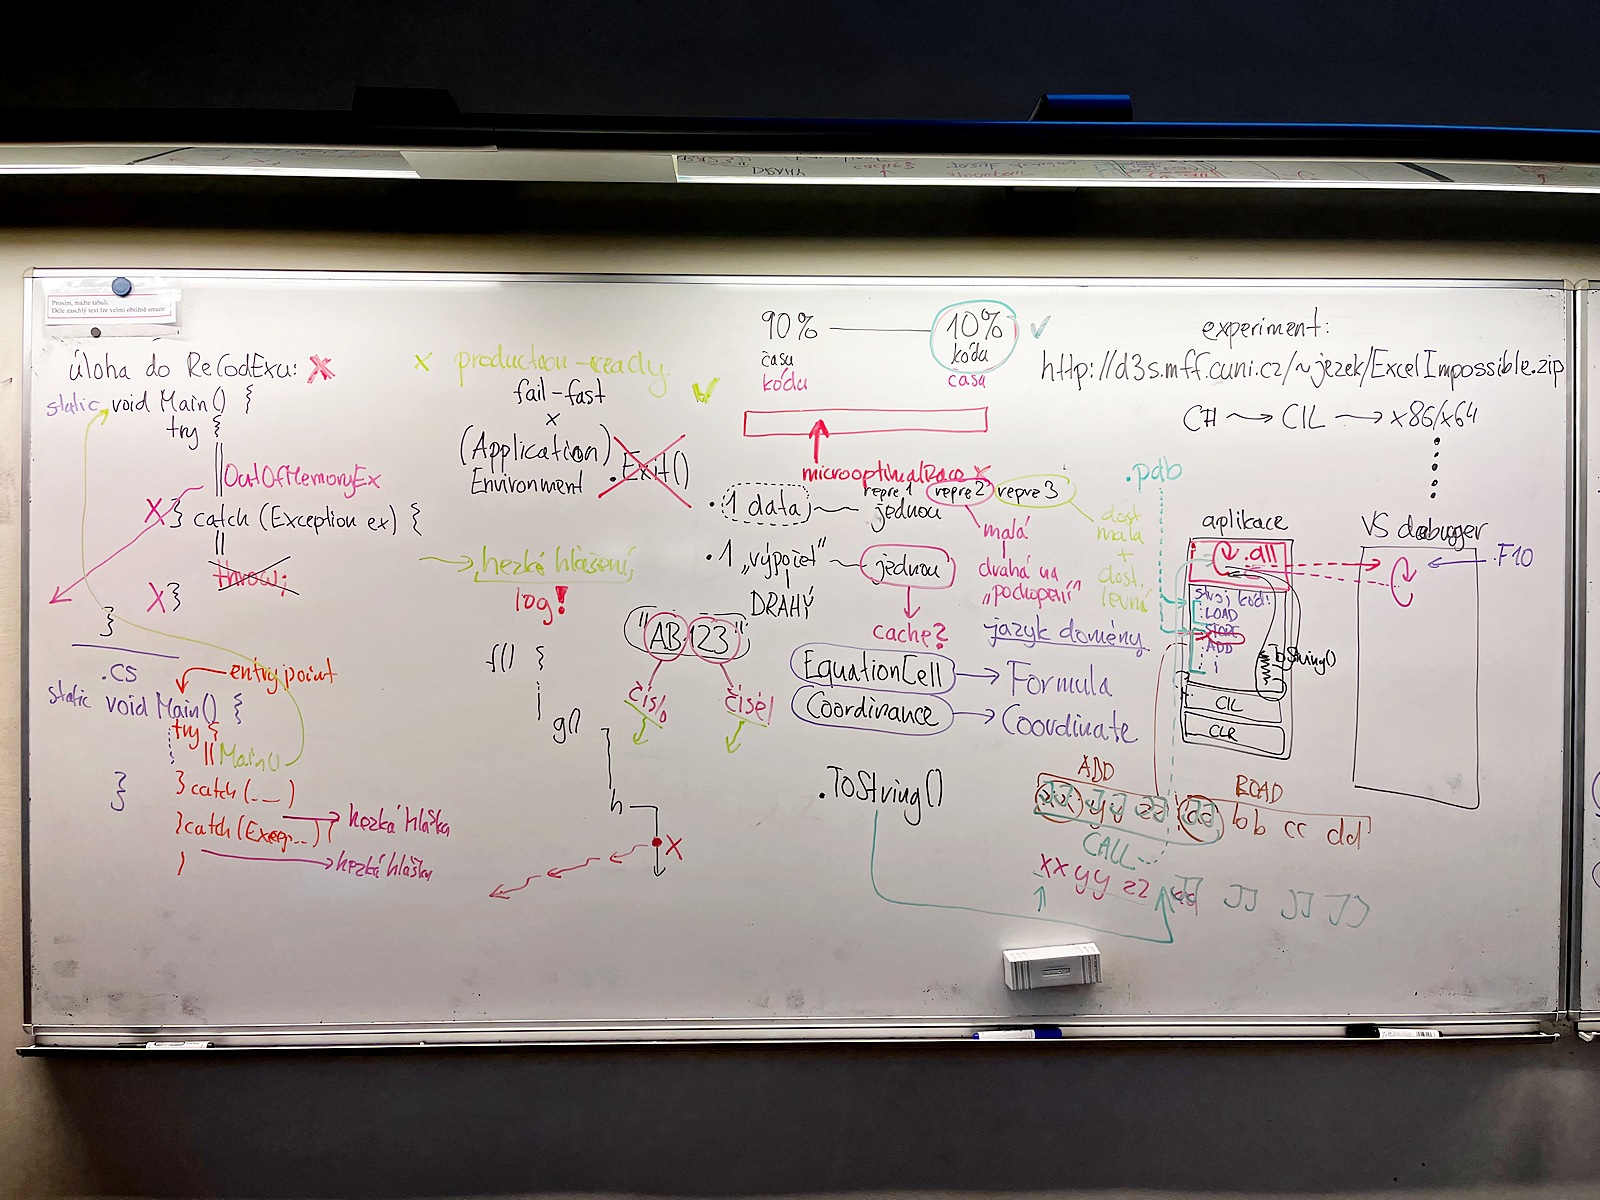 Prosím, mažte tabuli.
Déle zaschlý text lze velmi obtížně smazat!
úloha do ReCodExu: X
static void Main() {
try {
OutOfMemoryEx
X } catch (Exception ex) {
throw;
X }
}
.cs
entrypoint
static void Main() {
try {
Main()
} catch (...)
hezká hláška
} catch (Excep...) {
hezká hláška
}
}
x production-ready
fail-fast
x
(Application)
Environment .Exit()
hezké hlášení
log!
f() {
g()
h
X
"AB123"
čísl. čísel
90% — 10%
času kódu
kódu času
microoptimalizace x
• 1 data — jednou
repre 1 repre 2 repre 3
malá
drahá na
"pochopení"
dost
malá
+
dost.
levná
• 1 „výpočet“ — jednou
DRAHÝ
cache?
jazyk domény
EquationCell → Formula
Coordinance → Coordinate
.ToString()
experiment:
http://d3s.mff.cuni.cz/~jezek/ExcelImpossible.zip
C# → CIL → x86/x64
.pdb
aplikace
.dll
stroj. kód:
LOAD
STORE
ADD
ToString()
CIL
CLR
VS debugger
F10
ADD
xx yy zz aa bb cc dd
CALL
xx yy zz